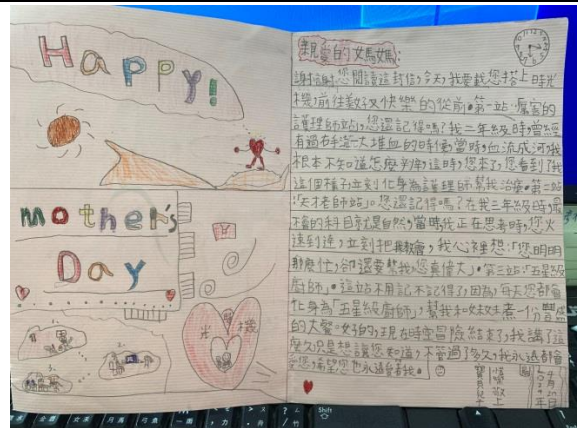 Happy!
mother's
Day
時光機
1.
2.
3.
親愛的媽媽:
謝謝您閱讀這封信,今天,我要載您搭上時光
機,前往美好又快樂的從前。第一站:厲害的
護理師站,您還記得嗎?我二年級時,曾經
有過右手流一大堆血的時候,當時血流成河,我
根本不知道怎麼辦,這時,您來了,您看到了我
這個樣子,立刻化身為護理師幫我治療。第二站
:「天才老師站」。您還記得嗎?在我三年級時,最
不會的科目就是自然,當時我正在思考時,您火
速到達,立刻把我教會,我心裡想:「您明明
那麼忙,卻還要幫我,您真偉大」。第三站:「五星級
廚師」。這站不用記不記得了,因為,每天您都會
化身為「五星級廚師」,幫我和妹妹煮一個豐盛
的大餐。好的,現在時空冒險結束了,我講了這
麼久,只是想讓您知道,不管過了多久,我永遠都會
愛您,希望您也永遠愛著我。
寶貝女兒
敬上